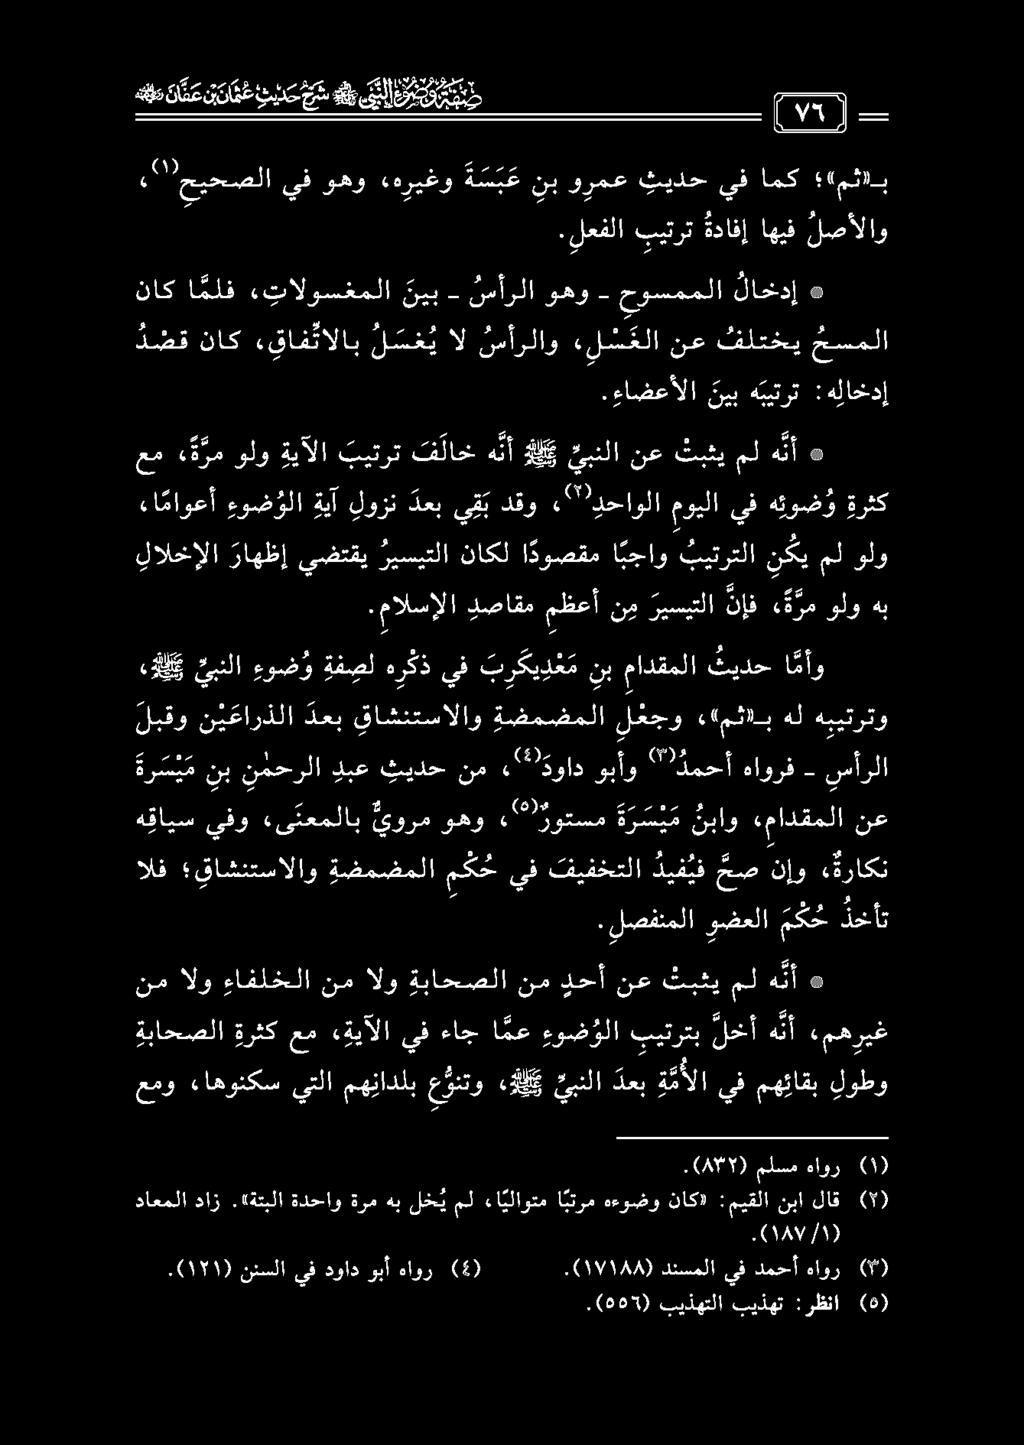 ٧٦
صِفَةُ وُضُوءِ النَّبِيِّ ﷺ شَرْحُ حَدِيثِ عُثْمَانَ بْنِ عَفَّانَ رضي الله عنه
بـ«ثم»؛ كما في حديثِ عمرِو بنِ عَبَسَةَ وغيرِه، وهو في الصحيحِ(١)،
والأصلُ فيها إفادةُ ترتيبِ الفعلِ.
* إدخالُ الممسوحِ ـ وهو الرأسُ ـ بينَ المغسولاتِ، فلمَّا كان
المسحُ يختلفُ عن الغَسْلِ، والرأسُ لا يُغسَلُ بالاتِّفاقِ، كان قصْدُ
إدخالِه: ترتيبَه بينَ الأعضاءِ.
* أنَّه لم يثبتْ عن النبيِّ ﷺ أنَّه خالَفَ ترتيبَ الآيةِ ولو مرَّةً، مع
كثرةِ وُضوئِه في اليومِ الواحدِ(٢)، وقد بَقِي بعدَ نزولِ آيةِ الوُضوءِ أعوامًا،
ولو لم يكُنِ الترتيبُ واجبًا مقصودًا لكان التيسيرُ يقتضي إظهارَ الإخلالِ
به ولو مرَّةً، فإنَّ التيسيرَ مِن أعظمِ مقاصدِ الإسلامِ.
وأمَّا حديثُ المقدامِ بنِ مَعْدِيكَرِبَ في ذكْرِه لصِفةِ وُضوءِ النبيِّ ﷺ،
وترتيبِه له بـ«ثم»، وجعْلِ المضمضةِ والاستنشاقِ بعدَ الذراعَيْنِ وقبلَ
الرأسِ ـ فرواه أحمدُ(٣) وأبو داودَ(٤)، من حديثِ عبدِ الرحمٰنِ بنِ مَيْسَرةَ
عن المقدامِ، وابنُ مَيْسَرَةَ مستورٌ(٥)، وهو مرويٌّ بالمعنَى، وفي سياقِه
نكارةٌ، وإن صحَّ فيُفيدُ التخفيفَ في حُكْمِ المضمضةِ والاستنشاقِ؛ فلا
تأخذُ حُكْمَ العضوِ المنفصلِ.
* أنَّه لم يثبتْ عن أحدٍ من الصحابةِ ولا من الخلفاءِ ولا من
غيرِهم، أنَّه أخلَّ بترتيبِ الوُضوءِ عمَّا جاء في الآيةِ، مع كثرةِ الصحابةِ
وطولِ بقائِهم في الأُمَّةِ بعدَ النبيِّ ﷺ، وتنوُّعِ بلدانِهم التي سكنوها، ومع
(١) رواه مسلم (٨٣٢).
(٢) قال ابن القيم: «كان وضوءه مرتبًا متواليًا، لم يُخل به مرة واحدة البتة». زاد المعاد
(١٨٧/١).
(٣) رواه أحمد في المسند (١٧١٨٨). (٤) رواه أبو داود في السنن (١٢١).
(٥) انظر: تهذيب التهذيب (٥٥٦).